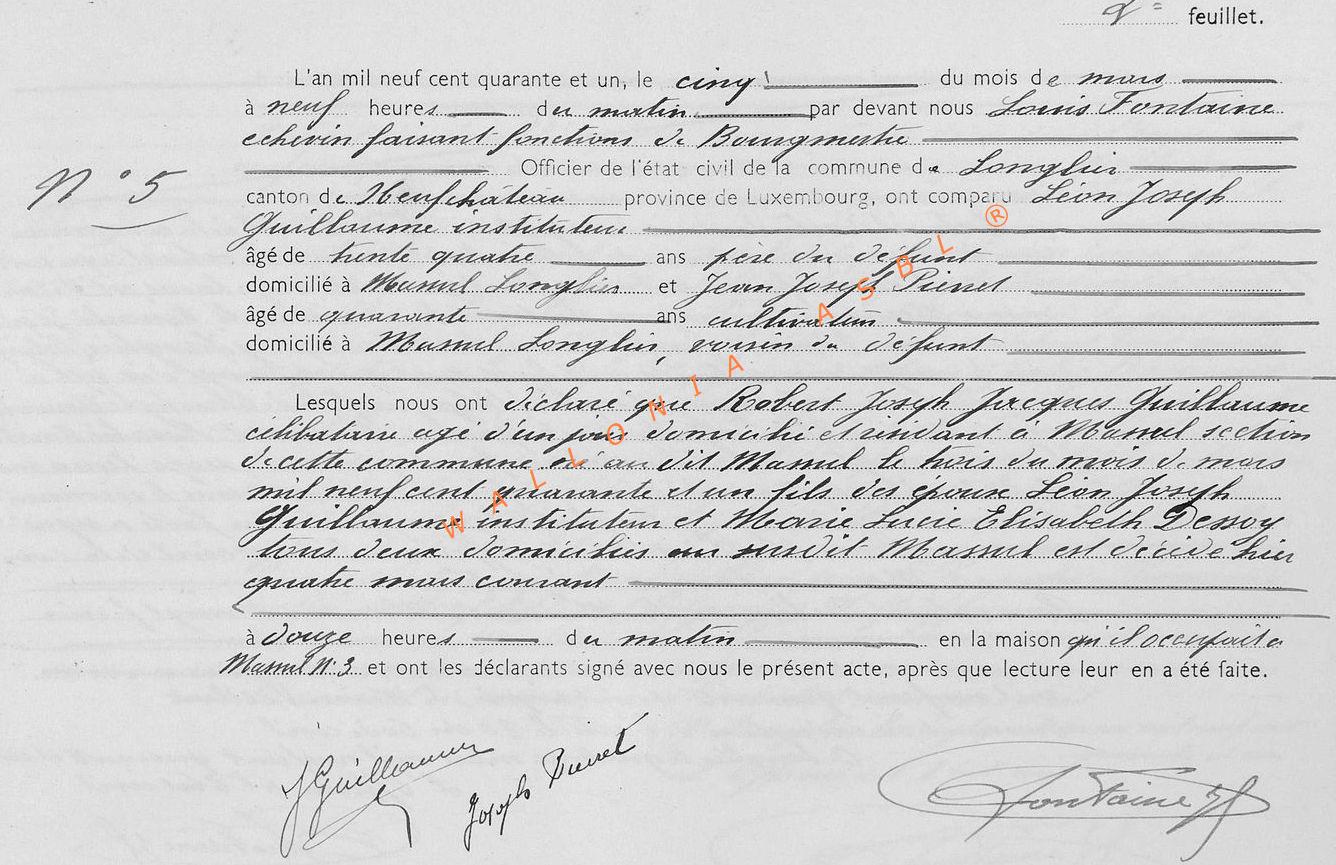 2e feuillet.
L'an mil neuf cent quarante et un, le cinq du mois de mars
à neuf heures du matin par devant nous Louis Fontaine
echevin faisant fonctions de Bourgmestre
Officier de l'état civil de la commune de Longlier
N° 5
canton de Neufchâteau province de Luxembourg, ont comparu Léon Joseph
Guillaume instituteur
âgé de trente quatre ans père du défunt
domicilié à Massul Longlier et Jean Joseph Pierret
âgé de quarante ans cultivateur
domicilié à Massul Longlier, voisin du défunt
Lesquels nous ont déclaré que Robert Joseph Jacques Guillaume
célibataire agé d'un jour domicilié et résidant à Massul section
de cette commune né au dit Massul le trois du mois de mars
mil neuf cent quarante et un fils des époux Léon Joseph
Guillaume instituteur et Marie Lucie Elisabeth Dessoy
tous deux domiciliés au susdit Massul est décédé hier
quatre mars courant
à douze heures du matin en la maison qu'il occupait à
Massul N. 3 et ont les déclarants signé avec nous le présent acte, après que lecture leur en a été faite.
WALLONIA ASBL ®
JGuillaume
Joseph Pierret
Fontaine